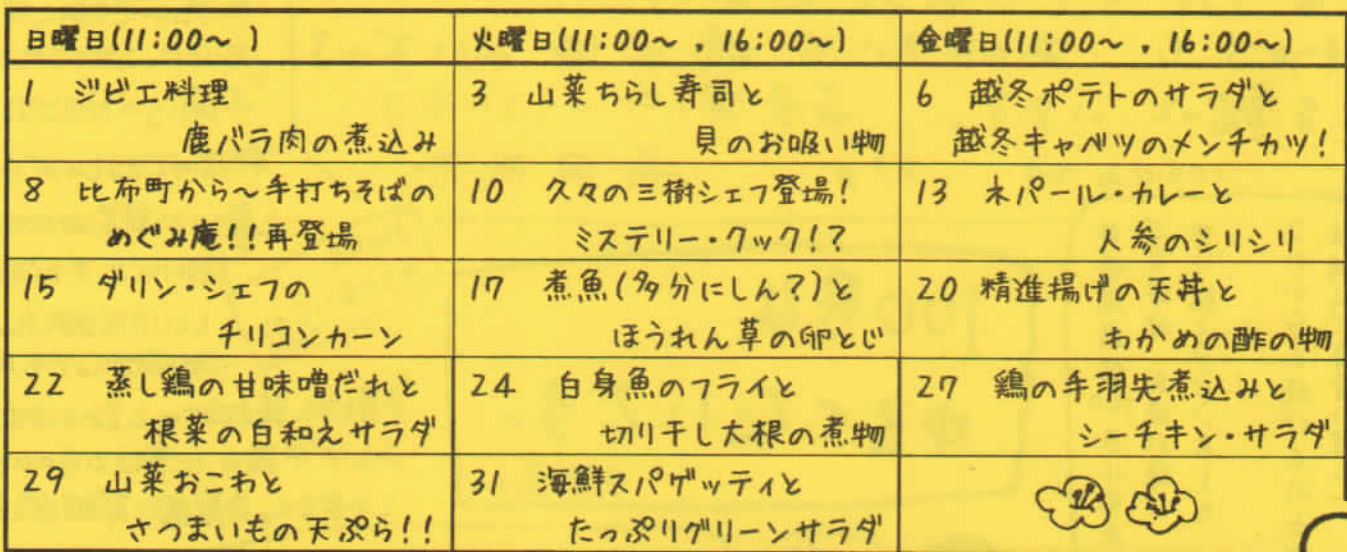 日曜日(11:00～ )
火曜日(11:00～ , 16:00～)
金曜日(11:00～ , 16:00～)
1 ジビエ料理
鹿バラ肉の煮込み
3 山菜ちらし寿司と
貝のお吸い物
6 越冬ポテトのサラダと
越冬キャベツのメンチカツ!
8 比布町から～手打ちそばの
めぐみ庵!!再登場
10 久々の三樹シェフ登場!
ミステリー・クック!?
13 ネパール・カレーと
人参のシリシリ
15 ダリン・シェフの
チリコンカーン
17 煮魚(多分にしん?)と
ほうれん草の卵とじ
20 精進揚げの天丼と
わかめの酢の物
22 蒸し鶏の甘味噌だれと
根菜の白和えサラダ
24 白身魚のフライと
切り干し大根の煮物
27 鶏の手羽先煮込みと
シーチキン・サラダ
29 山菜おこわと
さつまいもの天ぷら!!
31 海鮮スパゲッティと
たっぷりグリーンサラダ